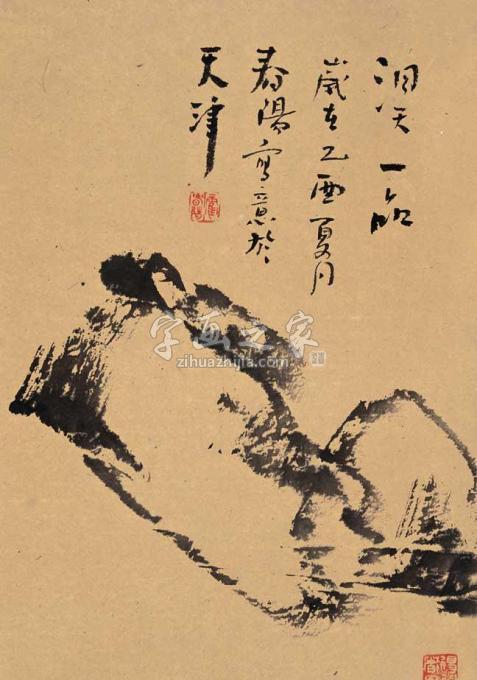 洞天一品
歲在乙酉夏月
春陽寫意於
天津
字画之家
zihuazhijia.com